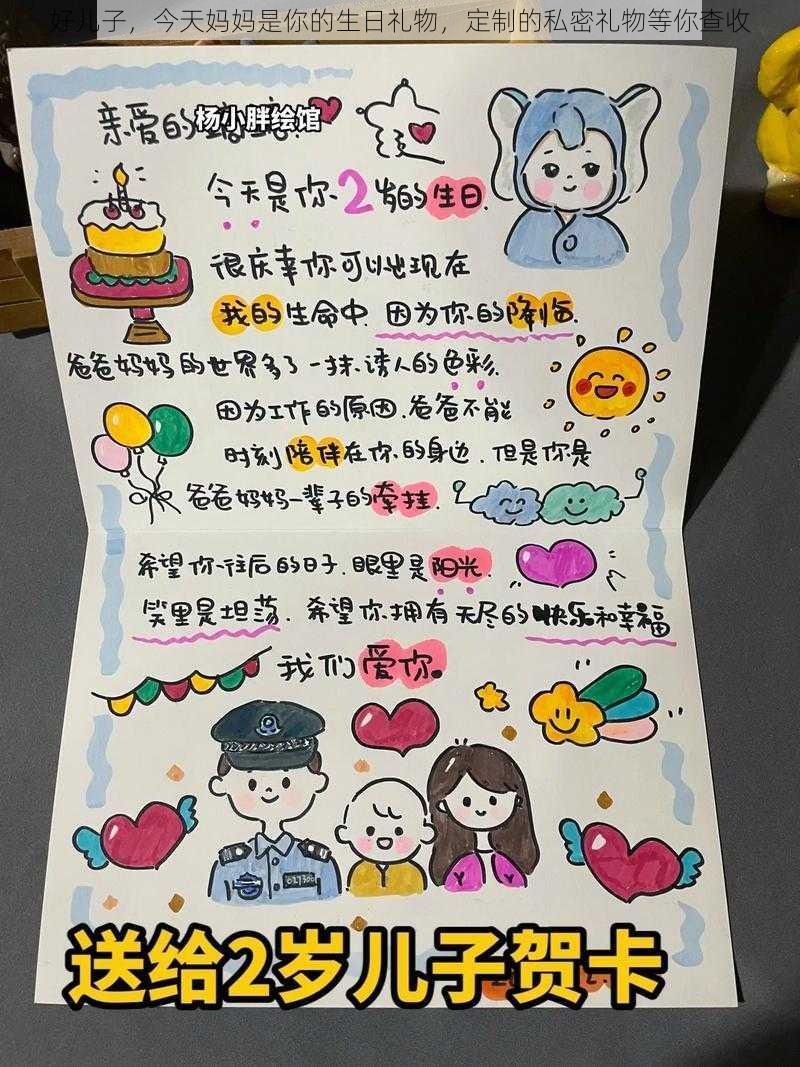 好儿子，今天妈妈是你的生日礼物，定制的私密礼物等你查收
亲爱的
杨小胖绘馆
今天是你2岁的生日.
很庆幸你可以出现在
我的生命中.因为你的降临.
爸爸妈妈的世界多了一抹诱人的色彩.
因为工作的原因.爸爸不能
时刻陪伴在你的身边.但是你是
爸爸妈妈一辈子的牵挂.
希望你往后的日子.眼里是阳光.
笑里是坦荡.希望你拥有天尽的快乐和幸福
我们爱你。
027306
送给2岁儿子贺卡